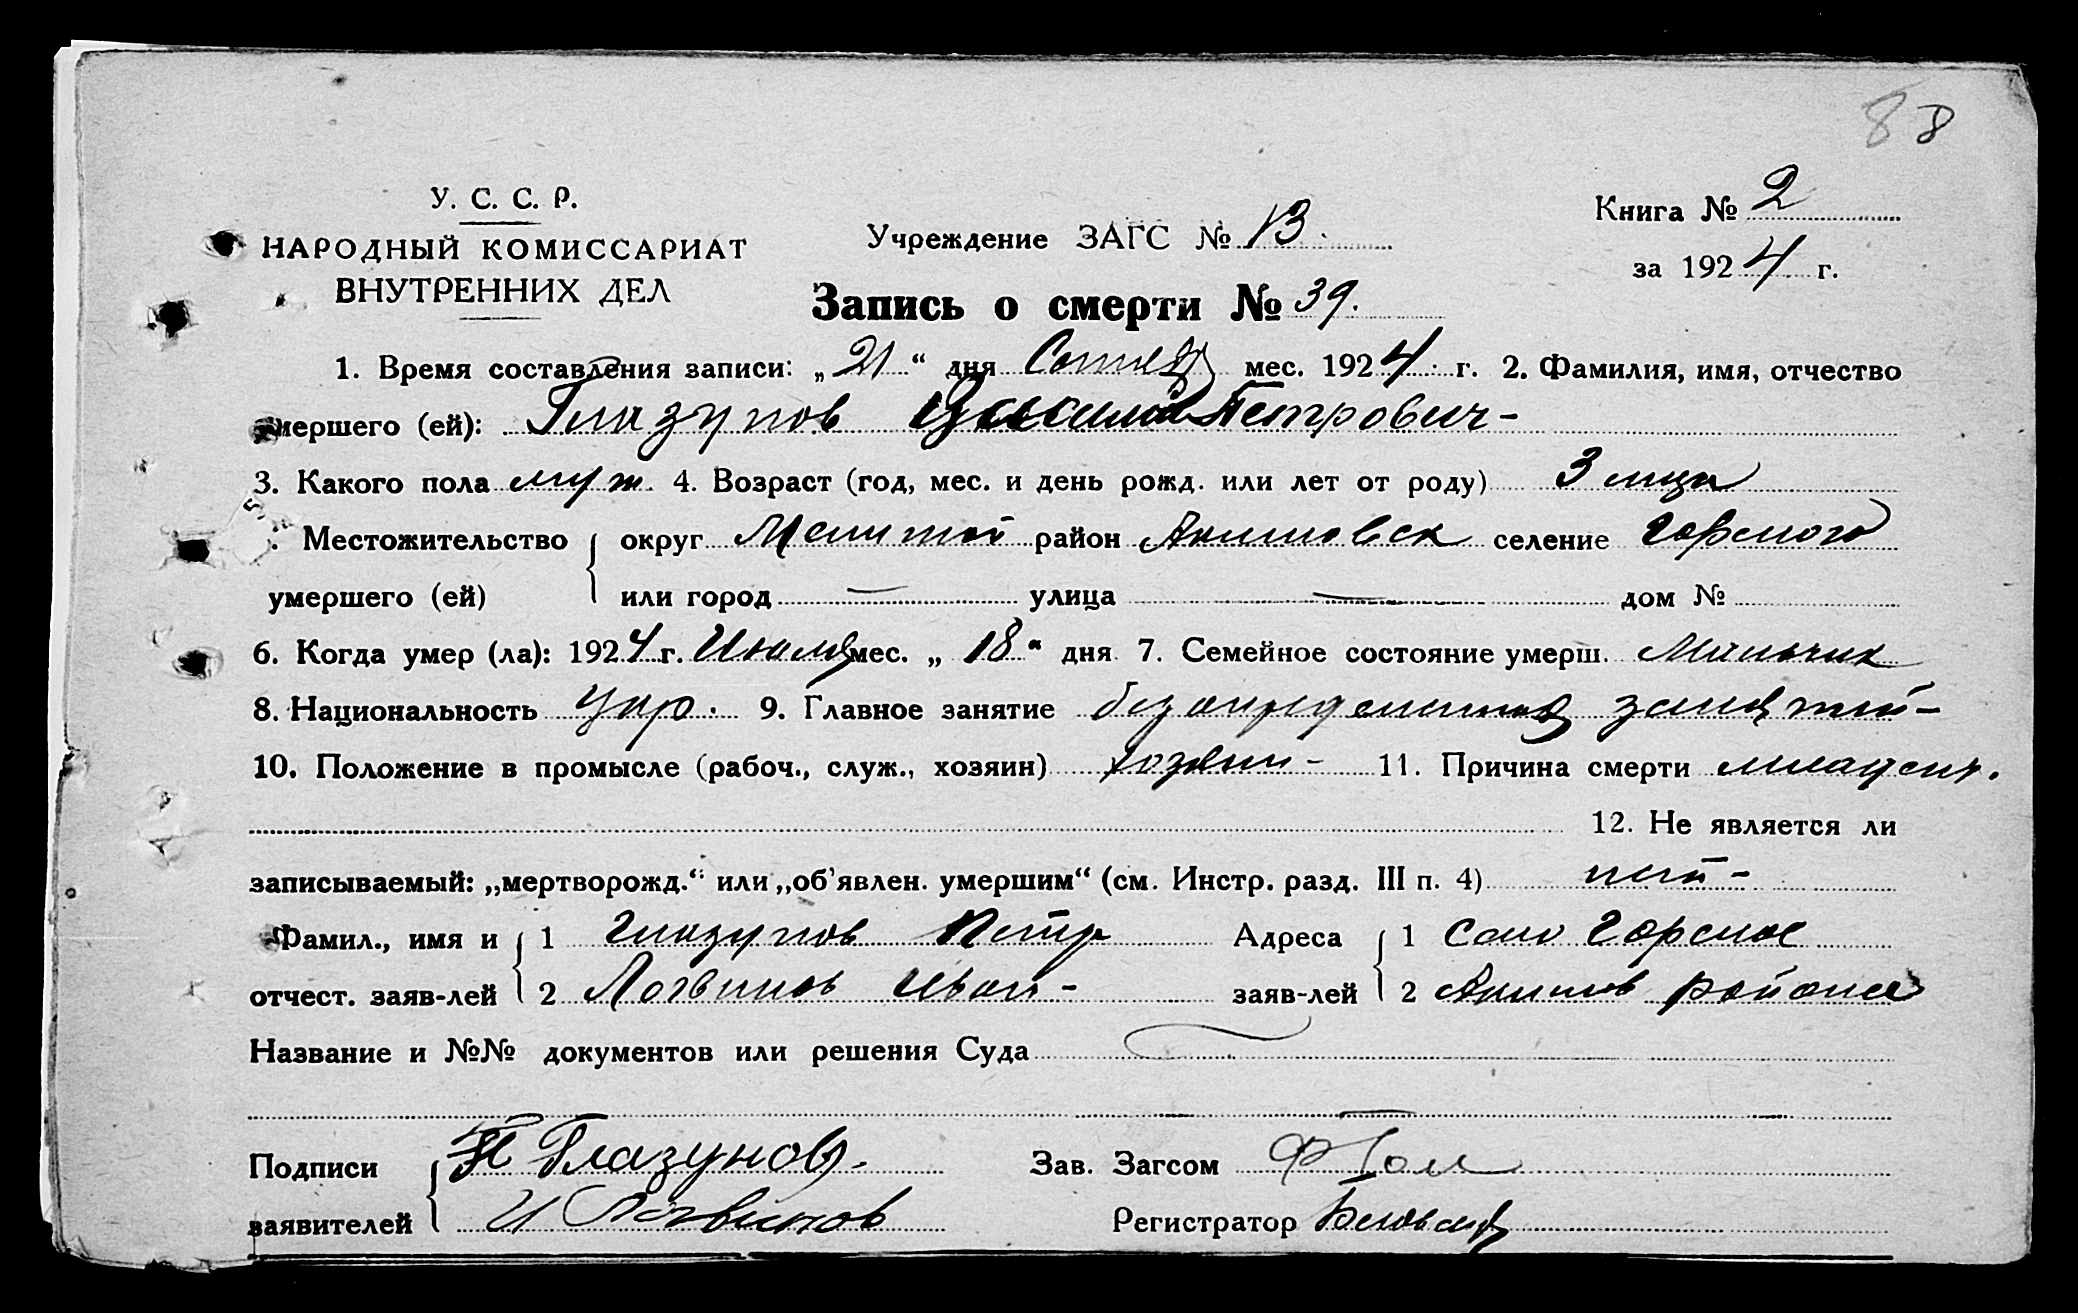 88
У. С. С. Р.
НАРОДНЫЙ КОМИССАРИАТ
ВНУТРЕННИХ ДЕЛ
Учреждение ЗАГС № 13.
Книга № 2
за 1924 г.
Запись о смерти № 39.
1. Время составления записи: „21“ дня мес. 1924 г. 2. Фамилия, имя, отчество
умершего (ей): Глазунов Петрович-
3. Какого пола муж. 4. Возраст (год, мес. и день рожд. или лет от роду) 3 мца
Местожительство округ Мелитоп район Акимовск селение Горского
умершего (ей) или город — улица — дом №
6. Когда умер (ла): 1924 г. Июля мес. „18“ дня 7. Семейное состояние умерш. Мальчик
8. Национальность Укр. 9. Главное занятие без определенных занятий-
10. Положение в промысле (рабоч., служ., хозяин) хозяин- 11. Причина смерти младенч.
12. Не является ли
записываемый: „мертворожд.“ или „об’явлен. умершим“ (см. Инстр. разд. III п. 4) нет-
Фамил., имя и 1 Глазунов Петр Адреса 1 Село Горское
отчест. заяв-лей 2 Логвинов Иван- заяв-лей 2 Акимов района
Название и №№ документов или решения Суда
Подписи П Глазунов. Зав. Загсом
заявителей И Логвинов Регистратор